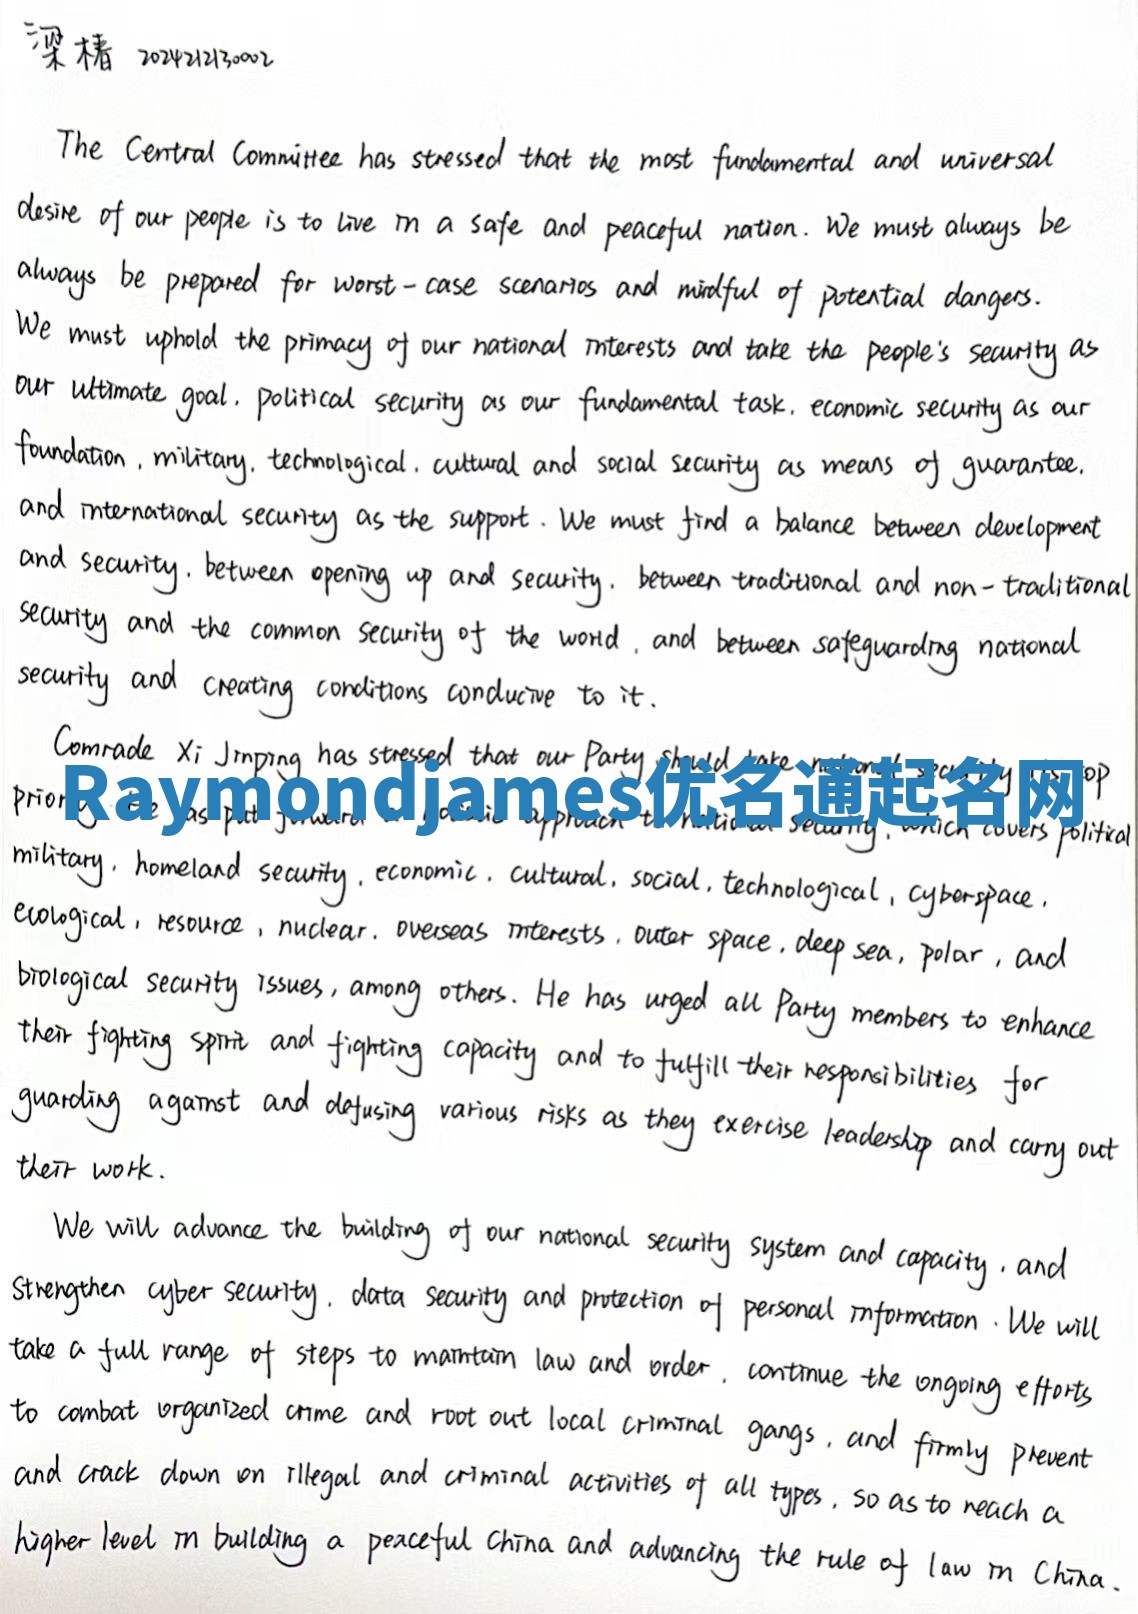 梁椿 2024212130002
The Central Committee has stressed that the most fundamental and universal
desire of our people is to live in a safe and peaceful nation. We must always be
always be prepared for worst-case scenarios and mindful of potential dangers.
We must uphold the primacy of our national interests and take the people's security as
our ultimate goal, political security as our fundamental task, economic security as our
foundation, military, technological, cultural and social security as means of guarantee,
and international security as the support. We must find a balance between development
and security, between opening up and security, between traditional and non-traditional
security and the common security of the world, and between safeguarding national
security and creating conditions conducive to it.
Comrade Xi Jinping has stressed that our Party should take national security top
Raymondjames优名通起名网
put forward approach to national security, which covers political
military, homeland security, economic, cultural, social, technological, cyberspace,
ecological, resource, nuclear, overseas interests, outer space, deep sea, polar, and
biological security issues, among others. He has urged all Party members to enhance
their fighting spirit and fighting capacity and to fulfill their responsibilities for
guarding against and defusing various risks as they exercise leadership and carry out
their work.
We will advance the building of our national security system and capacity, and
strengthen cyber security, data security and protection of personal information. We will
take a full range of steps to maintain law and order, continue the ongoing efforts
to combat organized crime and root out local criminal gangs, and firmly prevent
and crack down on illegal and criminal activities of all types, so as to reach a
higher level in building a peaceful China and advancing the rule of law in China.